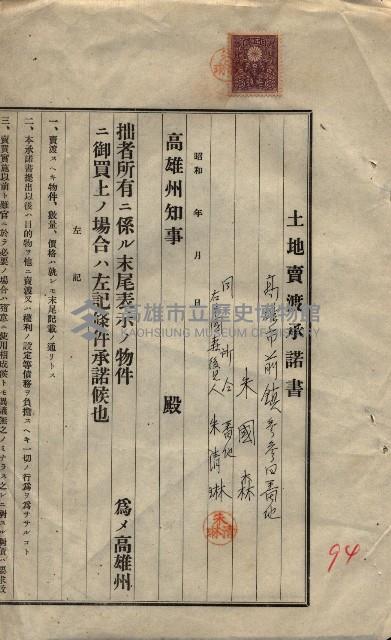 土地賣渡承諾書
高雄市前鎮参参四番地
朱國森
同所同番地
右後見人 朱清琳
朱清琳
昭和 年 月 日
高雄州知事 殿
為メ高雄州
拙者所有ニ係ル末尾表示ノ物件
ニ御買上ノ場合ハ左記條件承諾候也
左記
一、賣渡スヘキ物件、數量、價格ハ就レモ末尾記載ノ通リトス
二、本承諾書提出以後ハ目的物ヲ他ニ賣渡又ハ權利ノ設定等債務ヲ負擔スヘキ一切ノ行爲ヲ爲ササルコト
94
高雄市立歷史博物館
KAOHSIUNG MUSEUM OF HISTORY